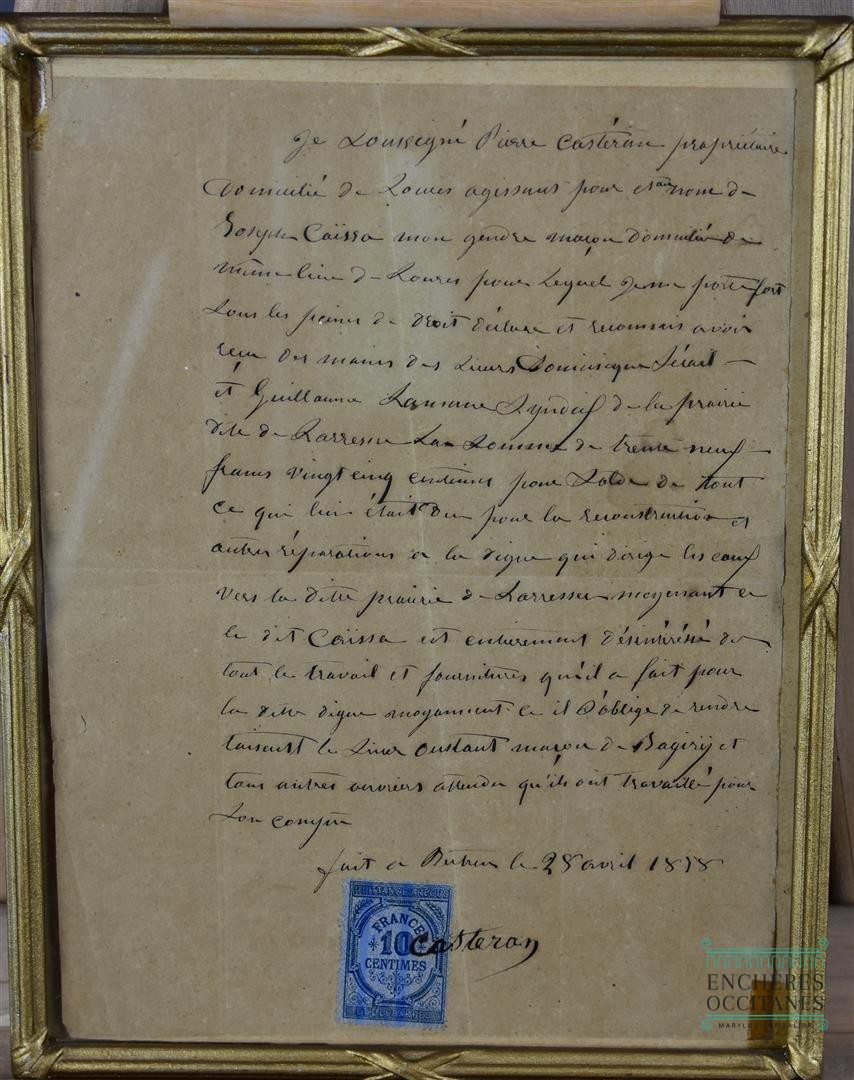 Je Soussigné Pierre Castéran propriétaire
Domicilié de Loures agissant pour et au nom de
Joseph Caïssa mon gendre maçon Domicilié de
même lieu de Loures pour Lequel Je me porte fort
Sous les peines de Droit déclare et reconnais avoir
reçu des mains des Sieurs Dominique
et Guillaume Syndics de la prairie
dite de Larresse La Somme de trente neuf
francs vingt cinq centimes pour Solde de tout
ce qui lui était Du pour la reconstruction et
autres réparations a la digue qui dirige les eaux
vers la ditte prairie de Larresse moyenant ce
le dit Caïssa est entierement désintéréssé de
tout le travail et fournitures qu'il a fait pour
la ditte digue moyennant ce il S'oblige de rendre
taisant le Sieur Oustant maçon de Bagiry et
tous autres ouvriers attendu qu'ils ont travaillé pour
Son compte
fait a le 28 avril 1878
Casteran
QUITTANCES REÇUS
FRANCE
10
CENTIMES
ET DÉCHARGES
ENCHÈRES
OCCITANES